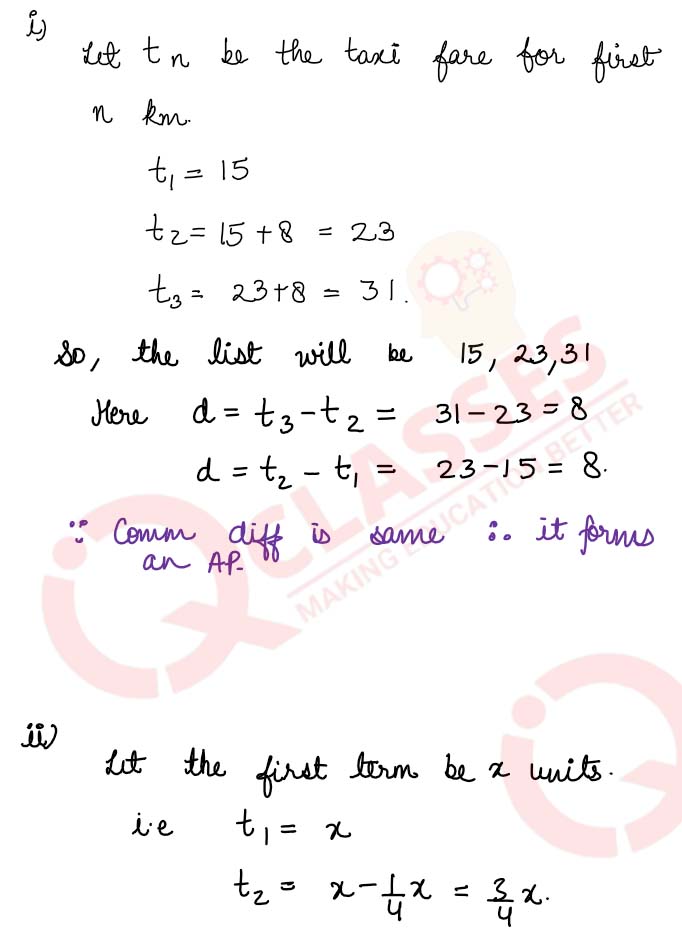 i)
Let tn be the taxi fare for first
n km.
t₁ = 15
t₂ = 15 + 8 = 23
t₃ = 23+8 = 31.
So, the list will be 15, 23, 31
Here d = t₃ - t₂ = 31 - 23 = 8
d = t₂ - t₁ = 23 - 15 = 8.
∵ Comm diff is same ∴ it forms
an AP.
CLASSES
MAKING EDUCATION BETTER
ii)
Let the first term be x units.
i.e t₁ = x
t₂ = x - 1/4 x = 3/4 x.